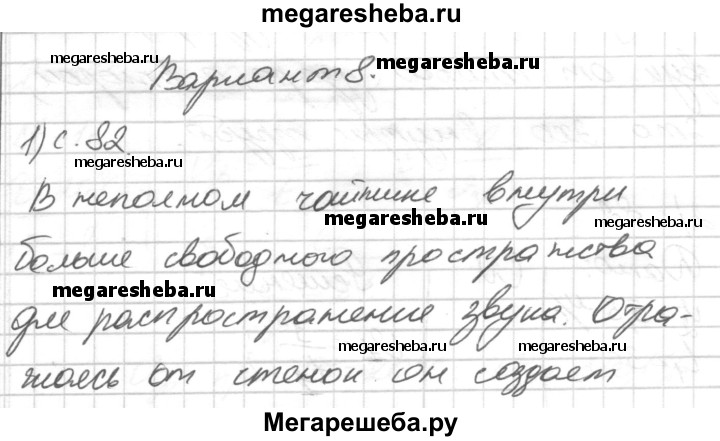 megaresheba.ru
megaresheba.ru
Вариант 8.
megaresheba.ru
1) с. 82
megaresheba.ru
В неполном чайнике внутри
megaresheba.ru
megaresheba.ru
больше свободного пространства
megaresheba.ru
для распространение звука. Отра-
megaresheba.ru
megaresheba.ru
жаясь от стенок он создает
Мегарешеба.ру